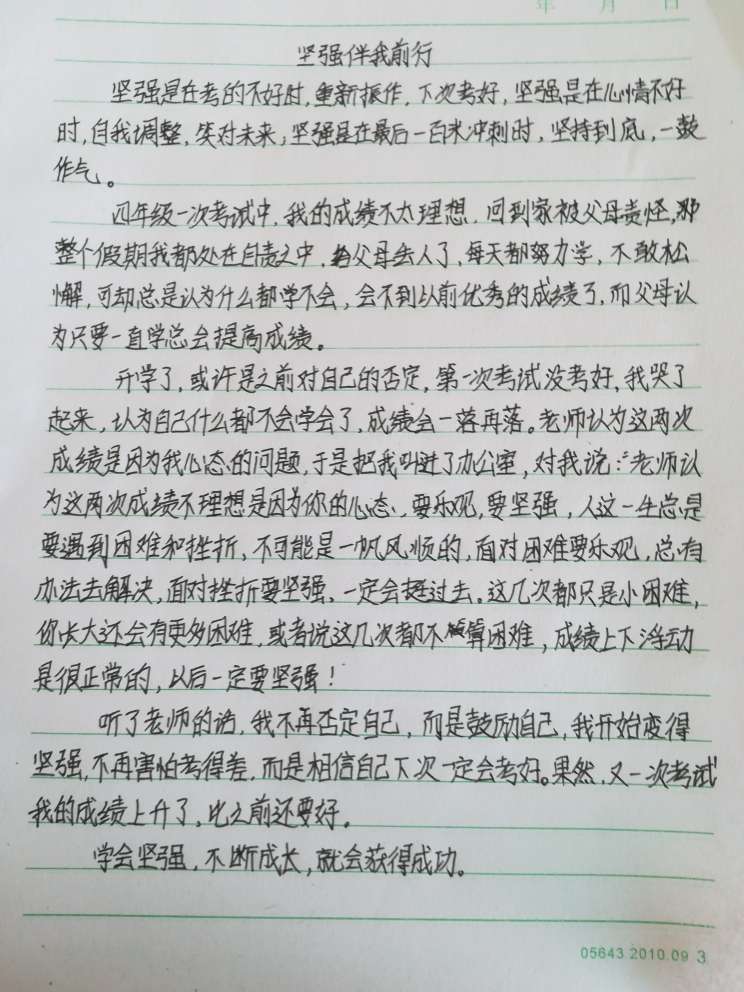 年 月 日
坚强伴我前行
坚强是在考的不好时,重新振作,下次考好,坚强是在心情不好
时,自我调整,笑对未来;坚强是在最后一百米冲刺时,坚持到底,一鼓
作气。
四年级一次考试中,我的成绩不太理想,回到家被父母责怪,那
整个假期我都处在自责之中,给父母丢人了,每天都努力学,不敢松
懈,可却总是认为什么都学不会,会不到以前优秀的成绩了,而父母认
为只要一直学总会提高成绩。
开学了,或许是之前对自己的否定,第一次考试没考好,我哭了
起来,认为自己什么都不会学会了,成绩会一落再落。老师认为这两次
成绩是因为我心态的问题,于是把我叫进了办公室,对我说:“老师认
为这两次成绩不理想是因为你的心态,要乐观,要坚强,人这一生总是
要遇到困难和挫折,不可能是一帆风顺的,面对困难要乐观,总有
办法去解决,面对挫折要坚强,一定会挺过去。这几次都只是小困难,
你长大还会有更多困难,或者说这几次都不算困难,成绩上下浮动
是很正常的,以后一定要坚强!
听了老师的话,我不再否定自己,而是鼓励自己,我开始变得
坚强,不再害怕考得差,而是相信自己下次一定会考好。果然,又一次考试
我的成绩上升了,比之前还要好。
学会坚强,不断成长,就会获得成功。
05643 2010.09 3